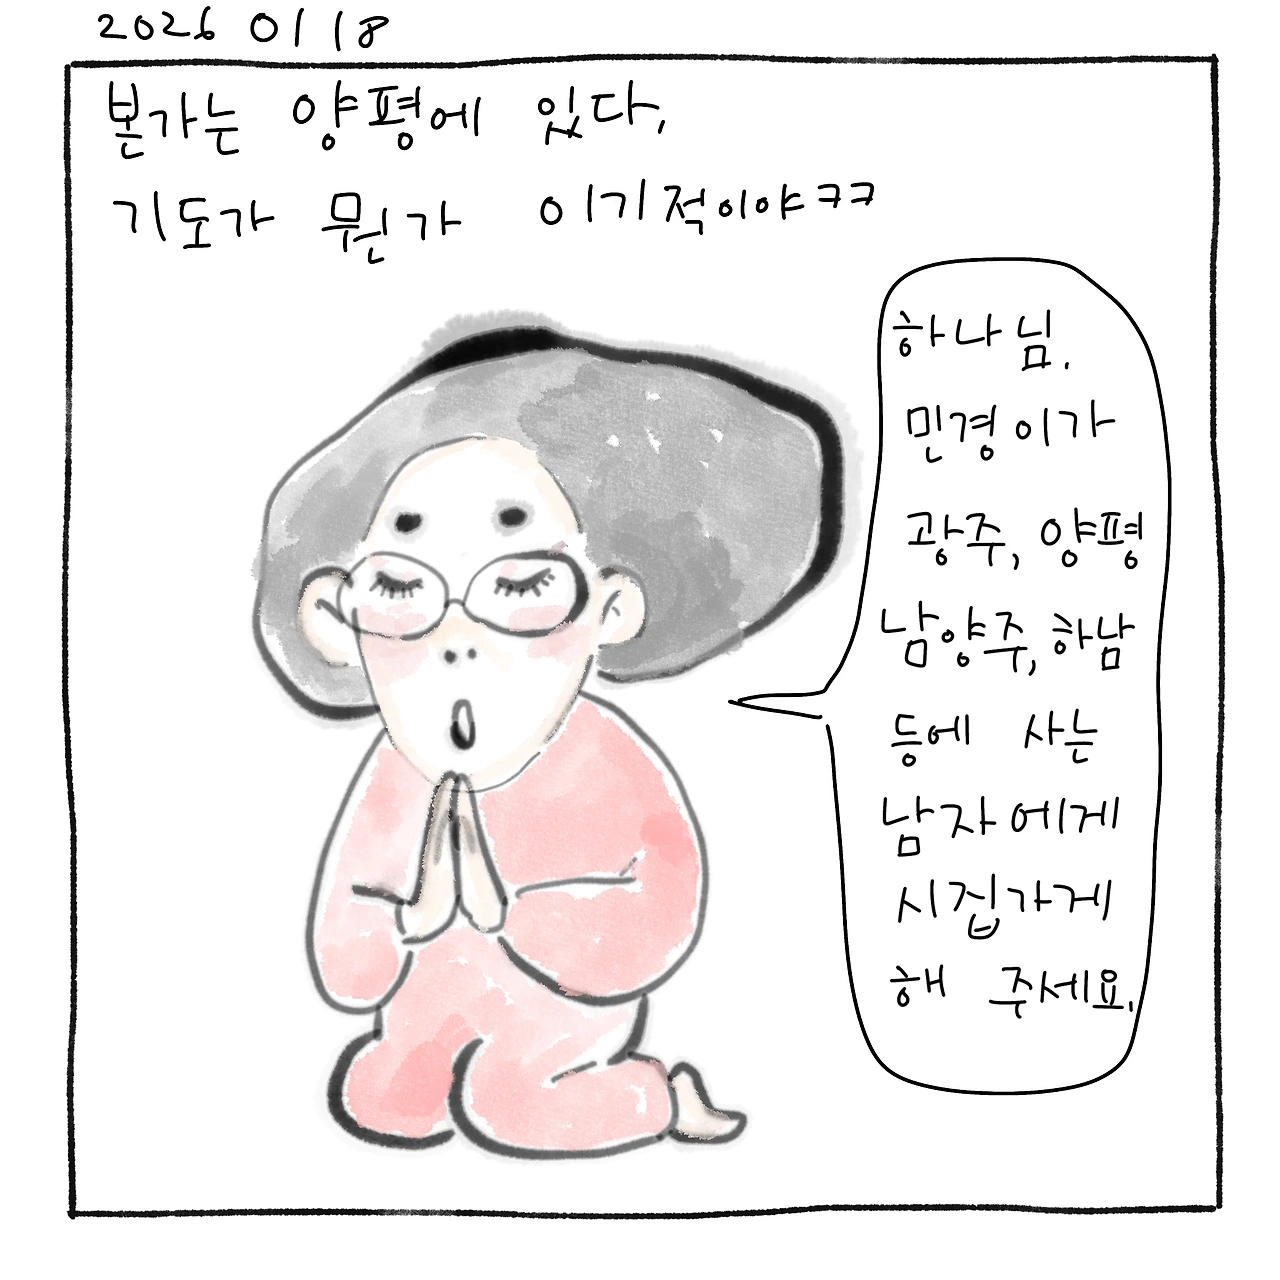 2026 01 18
본가는 양평에 있다,
기도가 뭔가 이기적이야ㅋㅋ
하나님.
민경이가
광주, 양평
남양주, 하남
등에 사는
남자에게
시집가게
해 주세요.